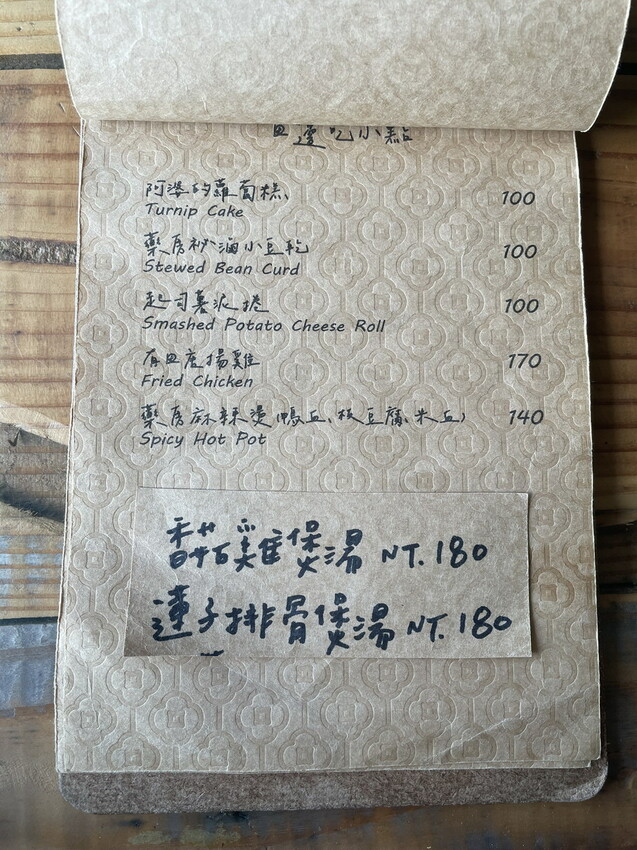 田邊吃小點
阿婆的蘿蔔糕 100
Turnip Cake
藥房祕滷小豆乾 100
Stewed Bean Curd
起司薯泥捲 100
Smashed Potato Cheese Roll
有田唐揚雞 170
Fried Chicken
藥房麻辣燙(鴨血、板豆腐、米血) 140
Spicy Hot Pot
香菇雞煲湯 NT.180
蓮子排骨煲湯 NT.180